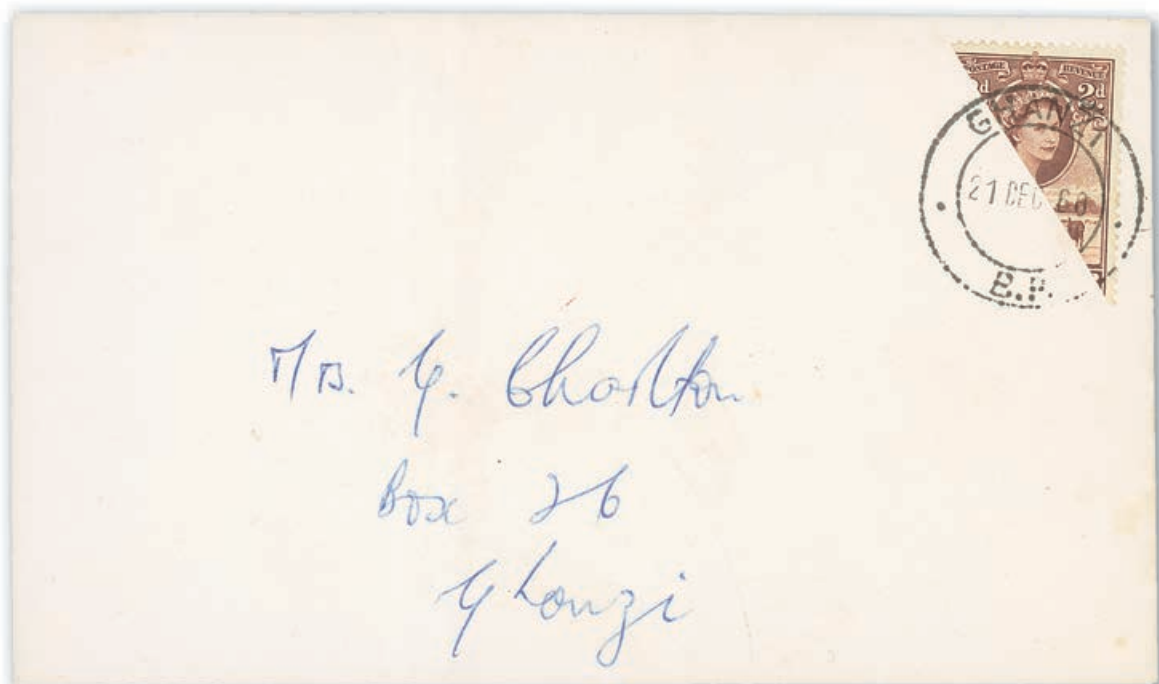 POSTAGE REVENUE
2d
GHANZI
21 DEC 60
B.P.
Mr. G. Charlton
Box 26
Ghanzi